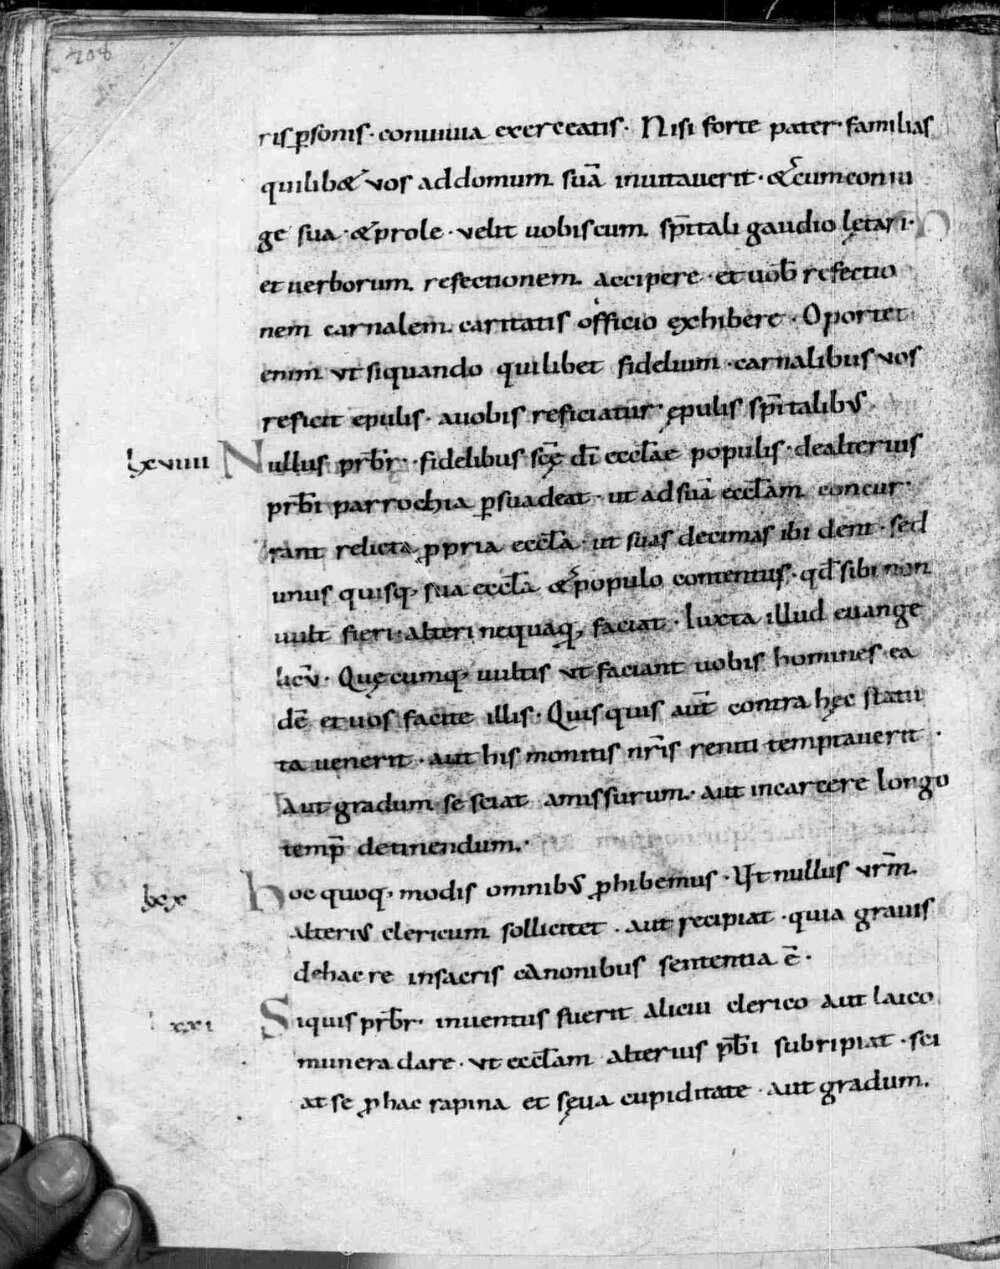 208
ris p̱sonis· conuiuia exerceatis· Nisi forte pater· familias
quilib& vos addomum suā inuitauerit· & cumconiu
ge sua· & prole· velit uobiscum sp̄itali gaudio lętari·
et uerborum refectionem accipere· et uob̄ refectio
nem carnalem caritatis officio ęxhibere· Oportet
enim vt siquando quilibet fidelium· carnalibus vos
reficit epulis· auobis reficiatur ępulis sp̄italibus
lxviiii Nullus prb̄r· fidelibus scę̄ dī eccl̄ae populis· dealterius
prb̄i parrochia p̱suadeat· ut ad suā eccl̄am concur·
rant relicta ꝓpria eccl̄a· ut suas decimas ibi dent· sed
unus quisq; sua eccl̄a & populo contentus· qd̄ sibi non
uult fieri· alteri nequaq̄; faciat· Iuxta illud euange
licū· Quęcumq; uultis vt faciant uobis homines· ea
dē et uos facite illis· Quisquis aut̄ contra hęc statu
ta uenerit· aut his monitis nr̄is reniti temptauerit·
Aut gradum se sciat amissurum· aut incarcere longo
temp̄ detinendum·
lxx hoc quoq; modis omnibus ꝓhibemus· Ut nullus vrm̄
alterius clericum sollicitet· aut recipiat· quia grauis
dehac re insacris canonibus sententia ē·
lxxi Siquis prb̄r· inuentus fuerit alicui clerico aut laico
munera dare· vt eccl̄am alterius pb̄i subripiat· sci
at se ꝓ hac rapina et sęua cupiditate· aut gradum